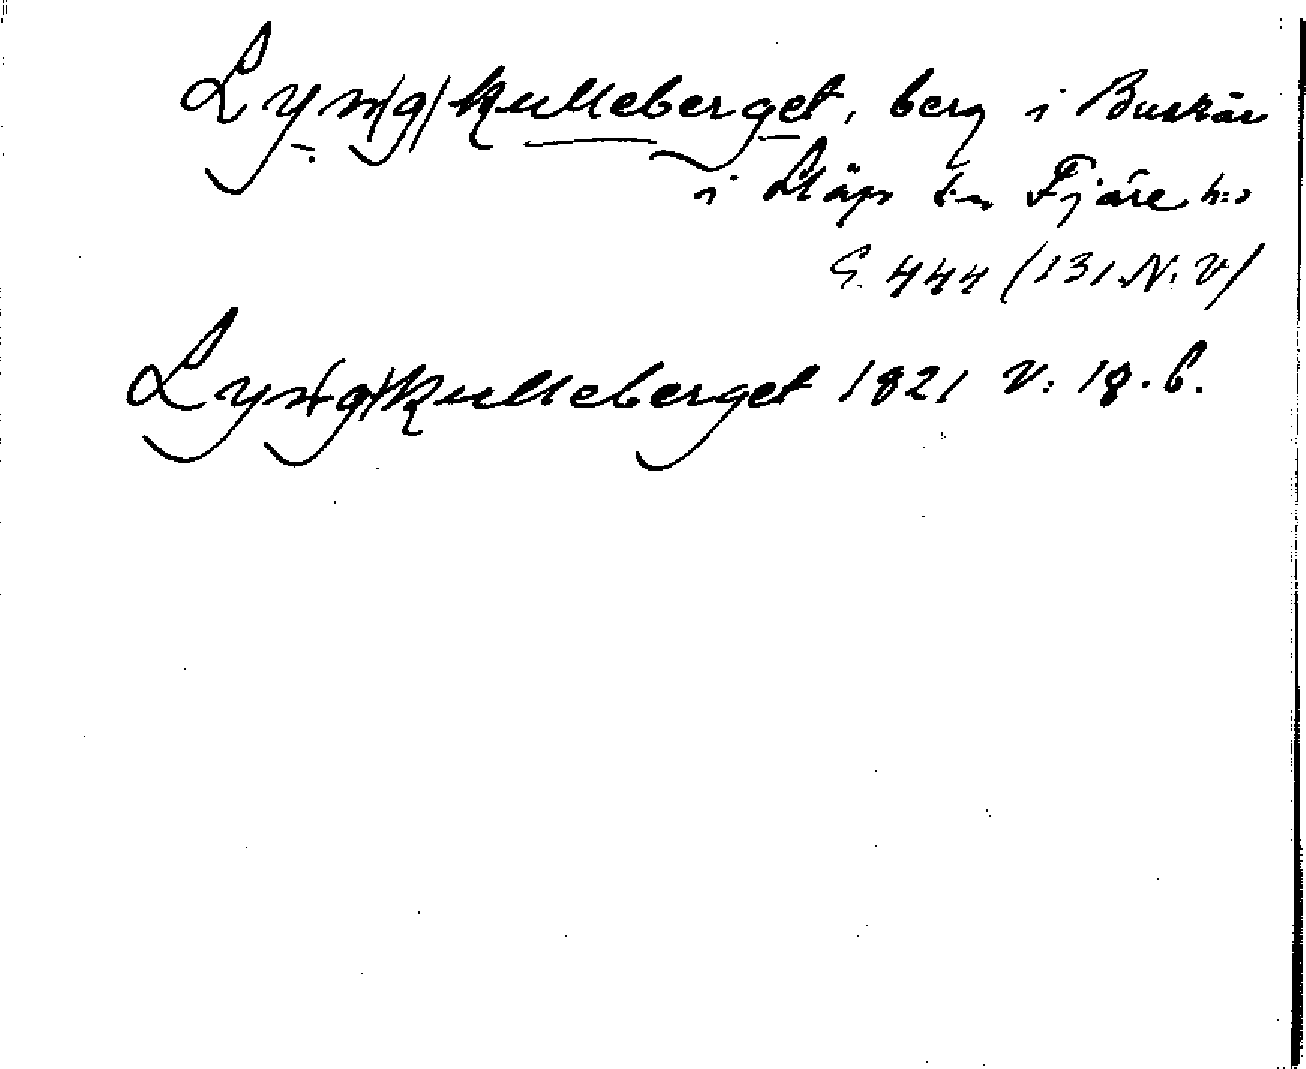 Lyn(g)kulleberget, berg i Buskär
i Släps sn Fjäre h:d
G. 444 (131 N. V)
Lyn(g)kulleberget 1821 V: 18. 6.